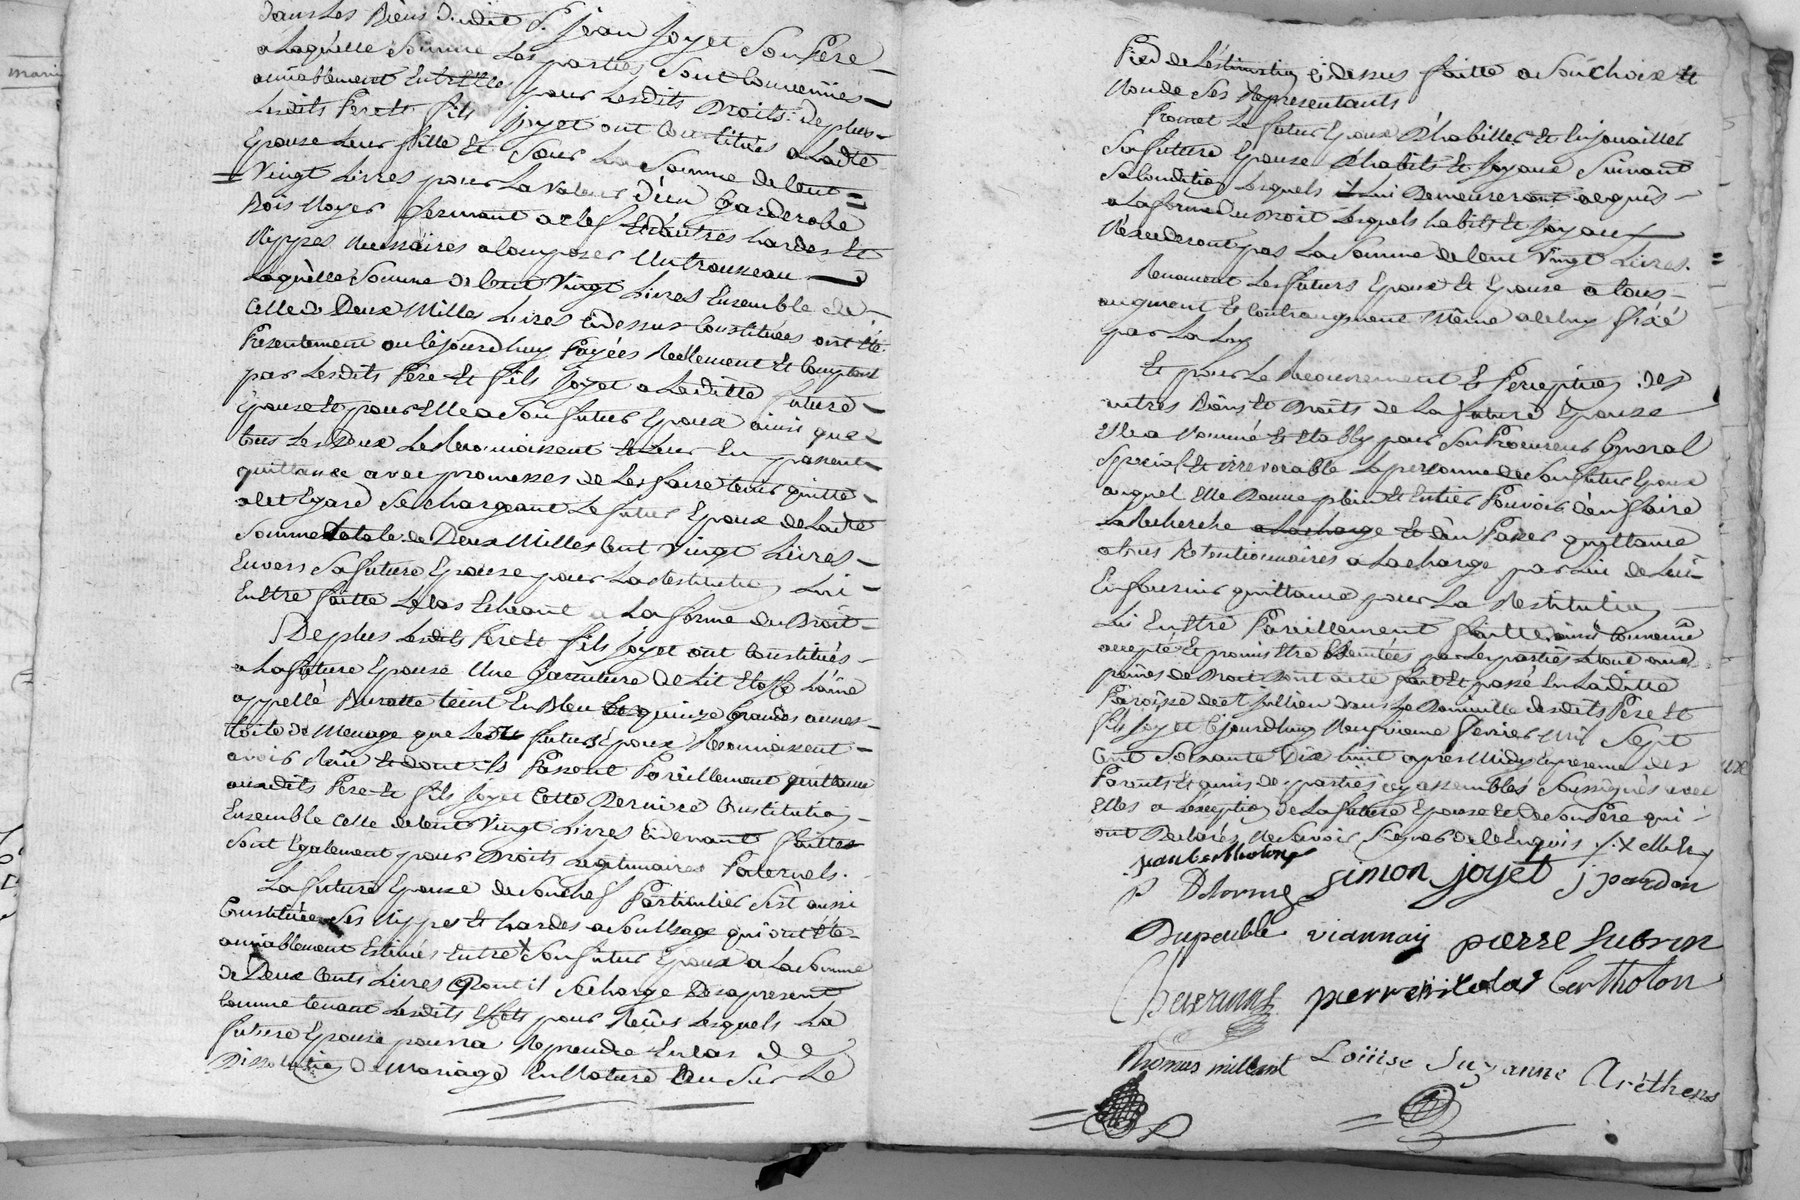 dans Les Biens dudit Sr. jean joyet Son Père
a Laquelle Somme Les parties Sont Convenües
amiablement Entrelles pour Lesdits Droits: Deplus
Lesdits Pere et fils joyet ont Constitués a Ladte
Epouse Leur fille Et Sœur La Somme de Cent
Vingt Livres pour La Valeur d'un Garderobe
Bois Noyer fermant a clef Et d'autres hardes Et
Nippes Necessaires a Composer Un trousseau
Laquelle Somme de Cent Vingt Livres Ensemble
Celle de Deux Milles Livres Cidessus Constituées ont été
Presentement ou Cejourdhuy Payées Reellement Et Comptant
par Lesdits Père Et fils joyet a Laditte future
Epouse Et pour Elle a Son futur Epoux ainsi que
tous Les Deux Le Reconnoissent Et Leur En passent
quittance avec promesses de Les faire tenir quitte
a cet Egard Se chargeant Le futur Epoux de Ladte
Somme totale de Deux Milles Cent Vingt Livres
Envers Sa future Epouse pour La Restitution Lui
En Etre faitte Le Cas Echeant a La forme du Droit
Deplus Lesdits Pere Et fils joyet ont Constitués
a La future Epouse Une Garniture de Lit Etoffe Laine
appellé Buratte teint En Bleu Et quinze Grandes aunes
toile de Menage que Lesdt futurs Epoux Reconnoissent
avoir Reçue Et dont ils Passent Pareillement quittance
auxdits Père Et fils joyet Cette Derniere Constitution
Ensemble Celle de Cent Vingt Livres Cidevant faittes
Sont Egalement pour Droits Legitimaires Paternels.
La future Epouse de Son Chef Particulier S'est aussi
Constituée Ses Nippes Et hardes a Son Usage qui ont Eté
amiablement Estimés Entre Son futur Epoux a La Somme
de Deux Cents Livres Dont il Se charge Des apresent
Comme tenant Lesdits Effets pour Reçus Lesquels La
future Epouse pourra Reprendre En Cas de
Dissolution de Mariage En Nature Ou Sur Le
Pied de L'estimation Cidessus faitte a Son Choix Et
Non de Ses Representants
Promet Le futur Epoux D'habiller Et Enjouailler
Sa future Epouse D'habits Et Joyaux Suivant
Sa Condition Lesquels Lui Demeureront acquis
a La forme du Droit Lesquels habits Et joyaux
N'Excederont pas La Somme de Cent Vingt Livres.
Renoncent Les futurs Epoux Et Epouse a tous
augment Et Contraugment Même a celuy fixé
par La Loy
Et pour Le Recouvrement Et Perception des
autres Biens Et Droits de La future Epouse
Elle a Nommé Et Etably pour Son Procureur General
Special Et irrevocable La personne de Son futur Epoux
auquel Elle Donne plein Et Entier Pouvoir d'en faire
La Recherche a La charge Et d'en Passer quittance
a tous Retentionnaires a La charge par Lui de Lui
En fournir quittance pour La Restitution
Lui En Etre Pareillement faitte ainsi Convenu
accepté Et promis Etre par Les parties
peines de Droit Dont acte fait Et passé En Laditte
Paroisse de St jullien dans Le Domicille desdits Père Et
fils joyet Cejourdhuy Neufvieme fevrier Mil Sept
Cent Soixante Dix huit après Midy En presence des
Parents Et amis des parties icy assemblés Soussignés avec
Elles a L'exception de La future Epouse Et de Son Père qui
ont Declarés Ne Savoir Signer de Ce Enquis
jean bertholon
P Delorme simon joyet j pardon
Dupeuble viannay pierre Subrin
Chavanne pierre nicolas Bertholon
Thomas millant Loüise Suzanne Aréthens